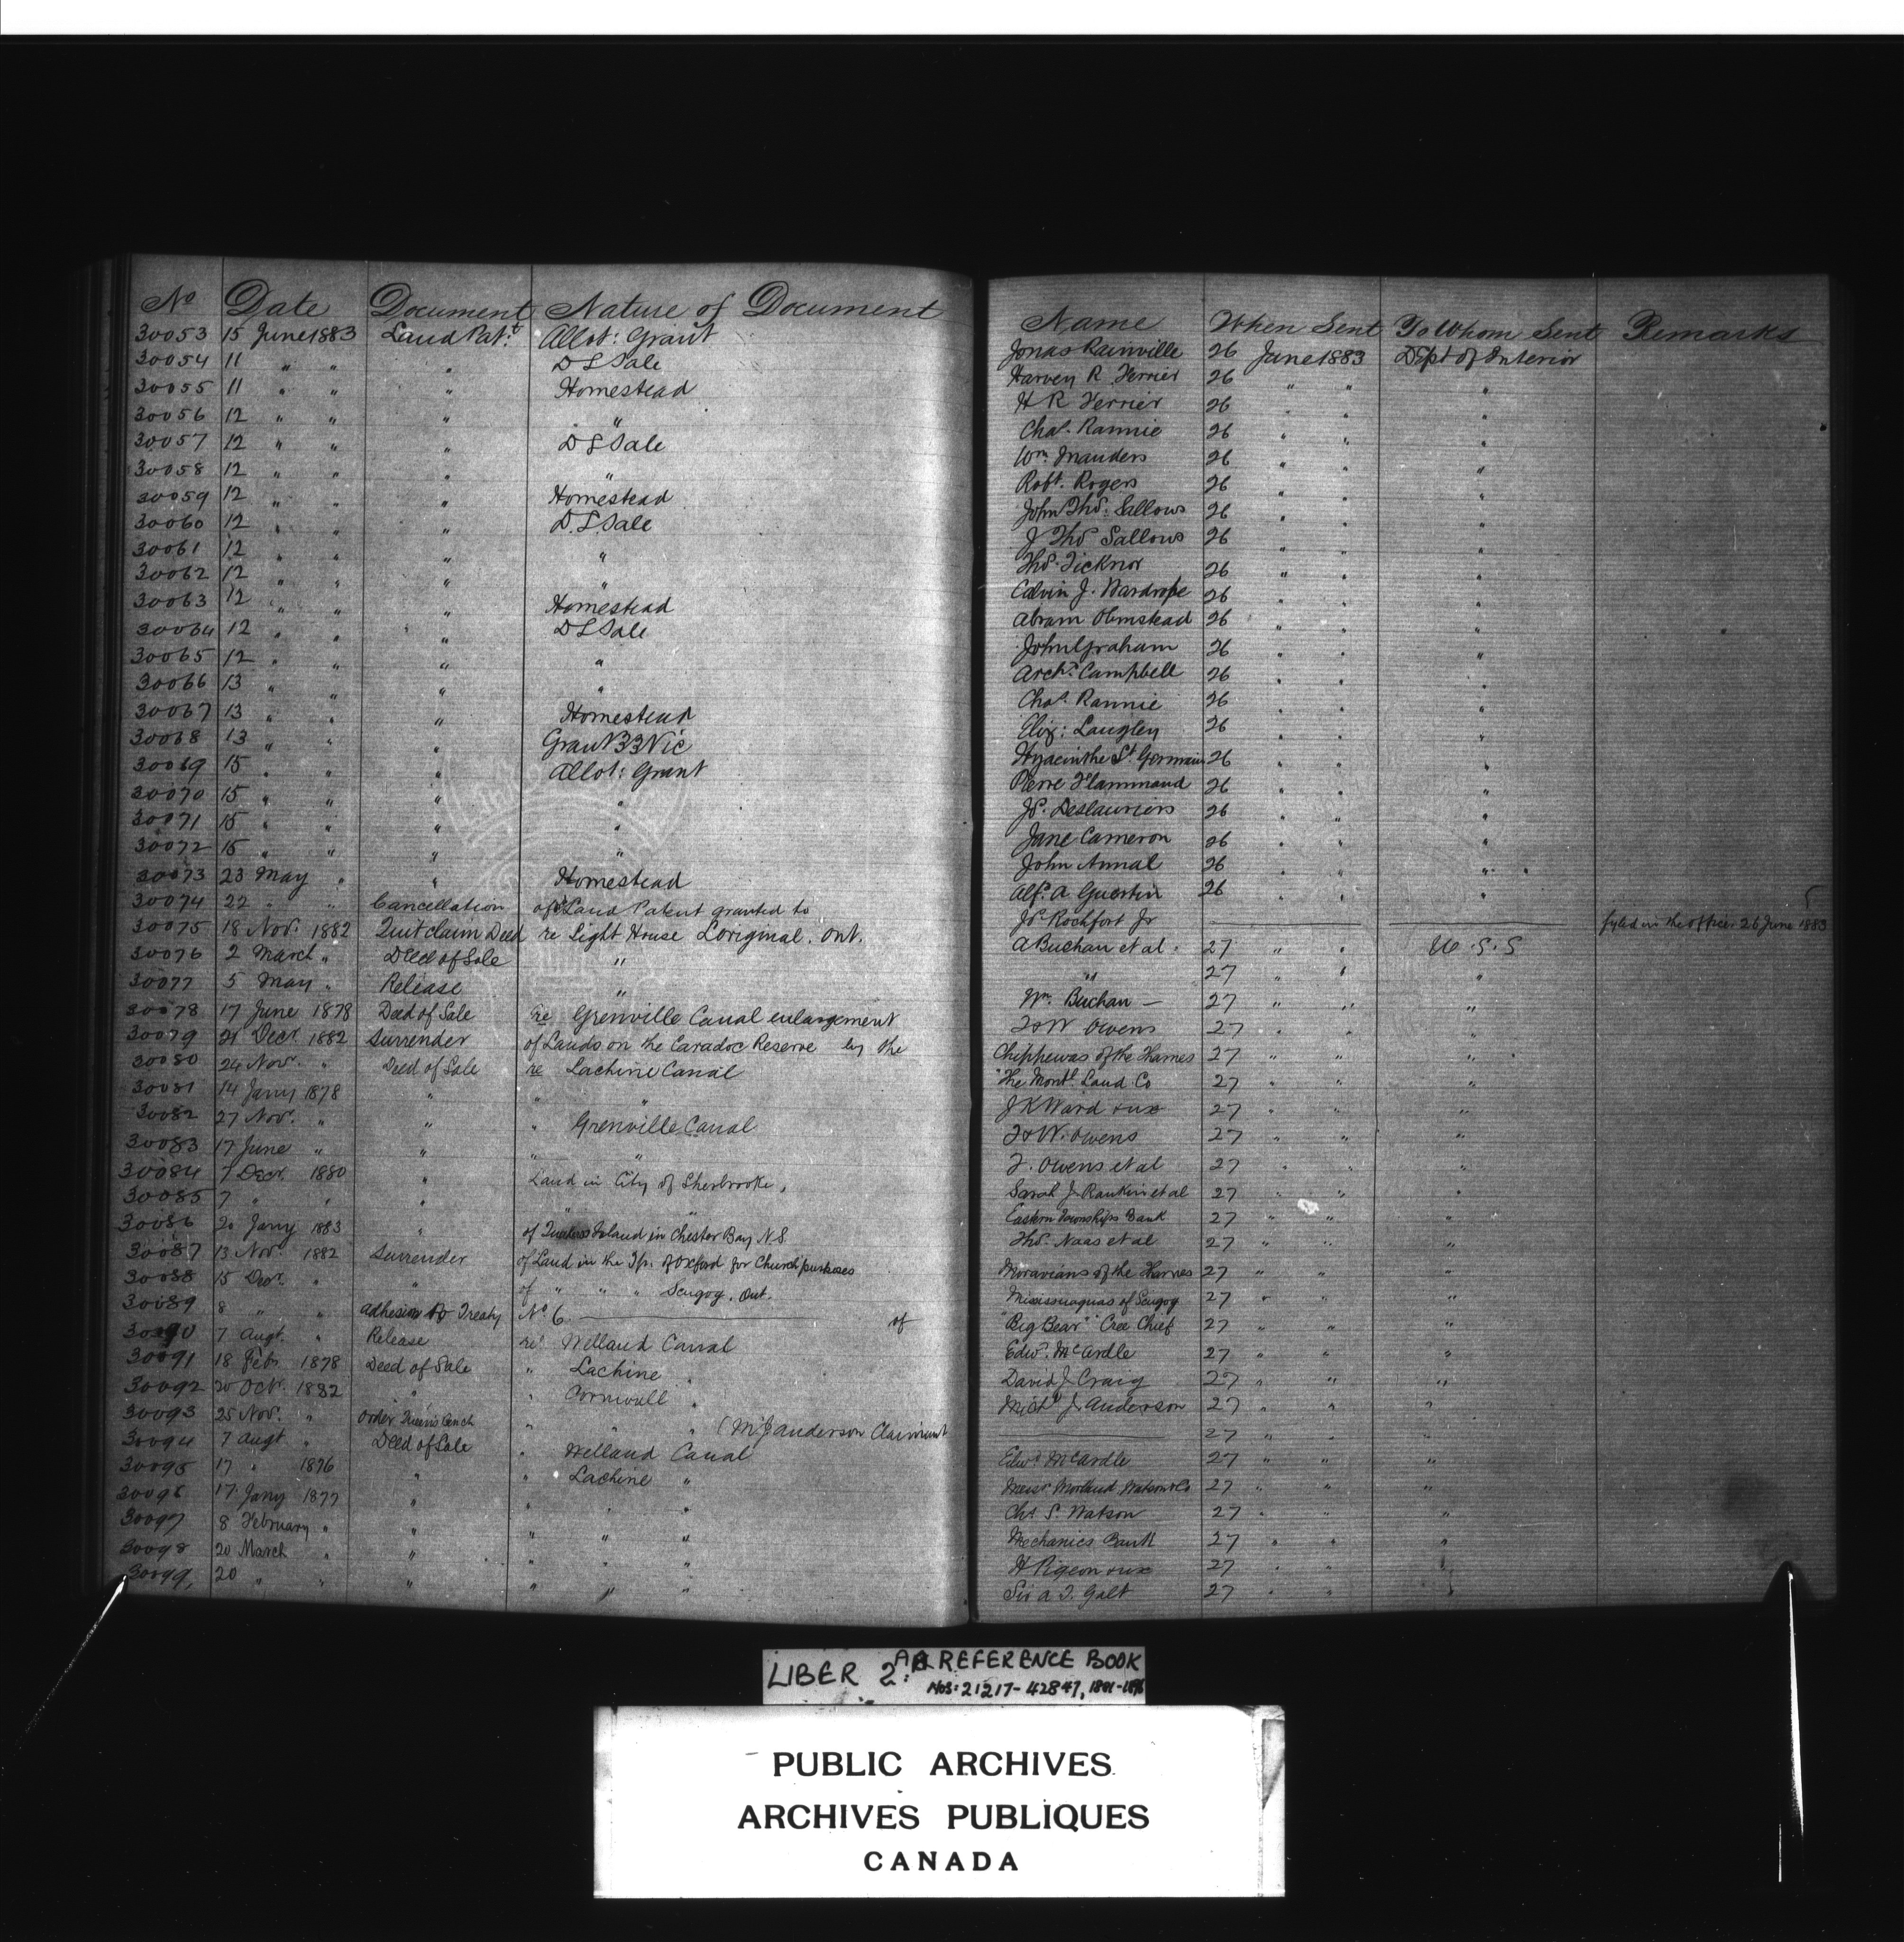 No Date Document Nature of Document Name When Sent To Whom Sent Remarks
30053 15 June 1883 Land Pat: Allot: Grant Jonas Rainville 26 June 1883 Dept of Interior
30054 11 " " " D L Sale Harvey R Ferrier 26 " " "
30055 11 " " " Homestead H R Ferrier 26 " " "
30056 12 " " " " Chas. Rannie 26 " " "
30057 12 " " " D L Sale Wm. Manders 26 " " "
30058 12 " " " " Robt. Rogers 26 " " "
30059 12 " " " Homestead John Thos. Sallows 26 " " "
30060 12 " " " D. L. Sale J Thos Sallows 26 " " "
30061 12 " " " " Thos. Ticknor 26 " " "
30062 12 " " " " Calvin J. Wardrope 26 " " "
30063 12 " " " Homestead Abram Olmstead 26 " " "
30064 12 " " " D L Sale John Graham 26 " " "
30065 12 " " " " Archd. Campbell 26 " " "
30066 13 " " " " Chas. Rannie 26 " " "
30067 13 " " " Homestead Eliz: Langley 26 " " "
30068 13 " " " Grant 33 Vic Hyacinthe St. Germain 26 " " "
30069 15 " " " Allot: Grant Pierre Flammand 26 " " "
30070 15 " " " " Js. Deslauriers 26 " " "
30071 15 " " " " Jane Cameron 26 " " "
30072 15 " " " " John Annal 26 " " "
30073 23 May " " Homestead Alfd. A Guertin 26 " " "
30074 22 " " Cancellation of Land Patent granted to Js Rochfort Jr fyled in the office 26 June 1883
30075 18 Nov. 1882 Quit claim Deed re Light House L'original. Ont. A Buchan et al. 27 " " U.S.S
30076 2 March " Deed of Sale " " 27 " " "
30077 5 May " Release " Wm. Buchan — 27 " " "
30078 17 June 1878 Deed of Sale re Grenville Canal enlargement T & W Owens 27 " " "
30079 21 Decr. 1882 Surrender of Lands on the Caradoc Reserve by the Chippewas of the Thames 27 " " "
30080 24 Nov. " Deed of Sale re Lachine Canal The Montl. Land Co 27 " " "
30081 14 Jany 1878 " " " J K Ward & ux 27 " " "
30082 27 Nov. " " " Grenville Canal T & W. Owens 27 " " "
30083 17 June " " " " T. Owens et al 27 " " "
30084 7 Decr. 1880 " Land in City of Sherbrooke, Sarah J Rankin et al 27 " " "
30085 7 " " " " " Eastern Townships Bank 27 " " "
30086 20 Jany 1883 " of Island in Chester Bay N.S Thos. Naas et al 27 " " "
30087 13 Nov. 1882 Surrender of Land in the Tp. of Oxford for Church purposes Moravians of the Thames 27 " " "
30088 15 Decr. " " of " " " Scugog, Ont. Mississaguas of Scugog 27 " " "
30089 8 " " Adhesion to Treaty No 6 of "Big Bear" Cree Chief 27 " " "
30090 7 Augt. " Release re. Welland Canal Edwd. McArdle 27 " " "
30091 18 Feb. 1878 Deed of Sale " Lachine " David J Craig 27 " " "
30092 20 Oct. 1882 " " Cornwall " Michl J Anderson 27 " " "
30093 25 Nov. " Order Queen's Bench " " " (M. J Anderson Claimant 27 " " "
30094 7 Augt " Deed of Sale " Welland Canal Edwd McArdle 27 " " "
30095 17 " 1876 " " Lachine " Messrs Morland Watson & Co 27 " " "
30096 17 Jany 1877 " " " " Chs S. Watson 27 " " "
30097 8 February " " " " " Mechanics Bank 27 " " "
30098 20 March " " " " " H Pigeon & ux 27 " " "
30099 20 " " " " " " Sir A. T. Galt 27 " " "
LIBER 2A: REFERENCE BOOK
NOS: 21217-42847,
PUBLIC ARCHIVES
ARCHIVES PUBLIQUES
CANADA